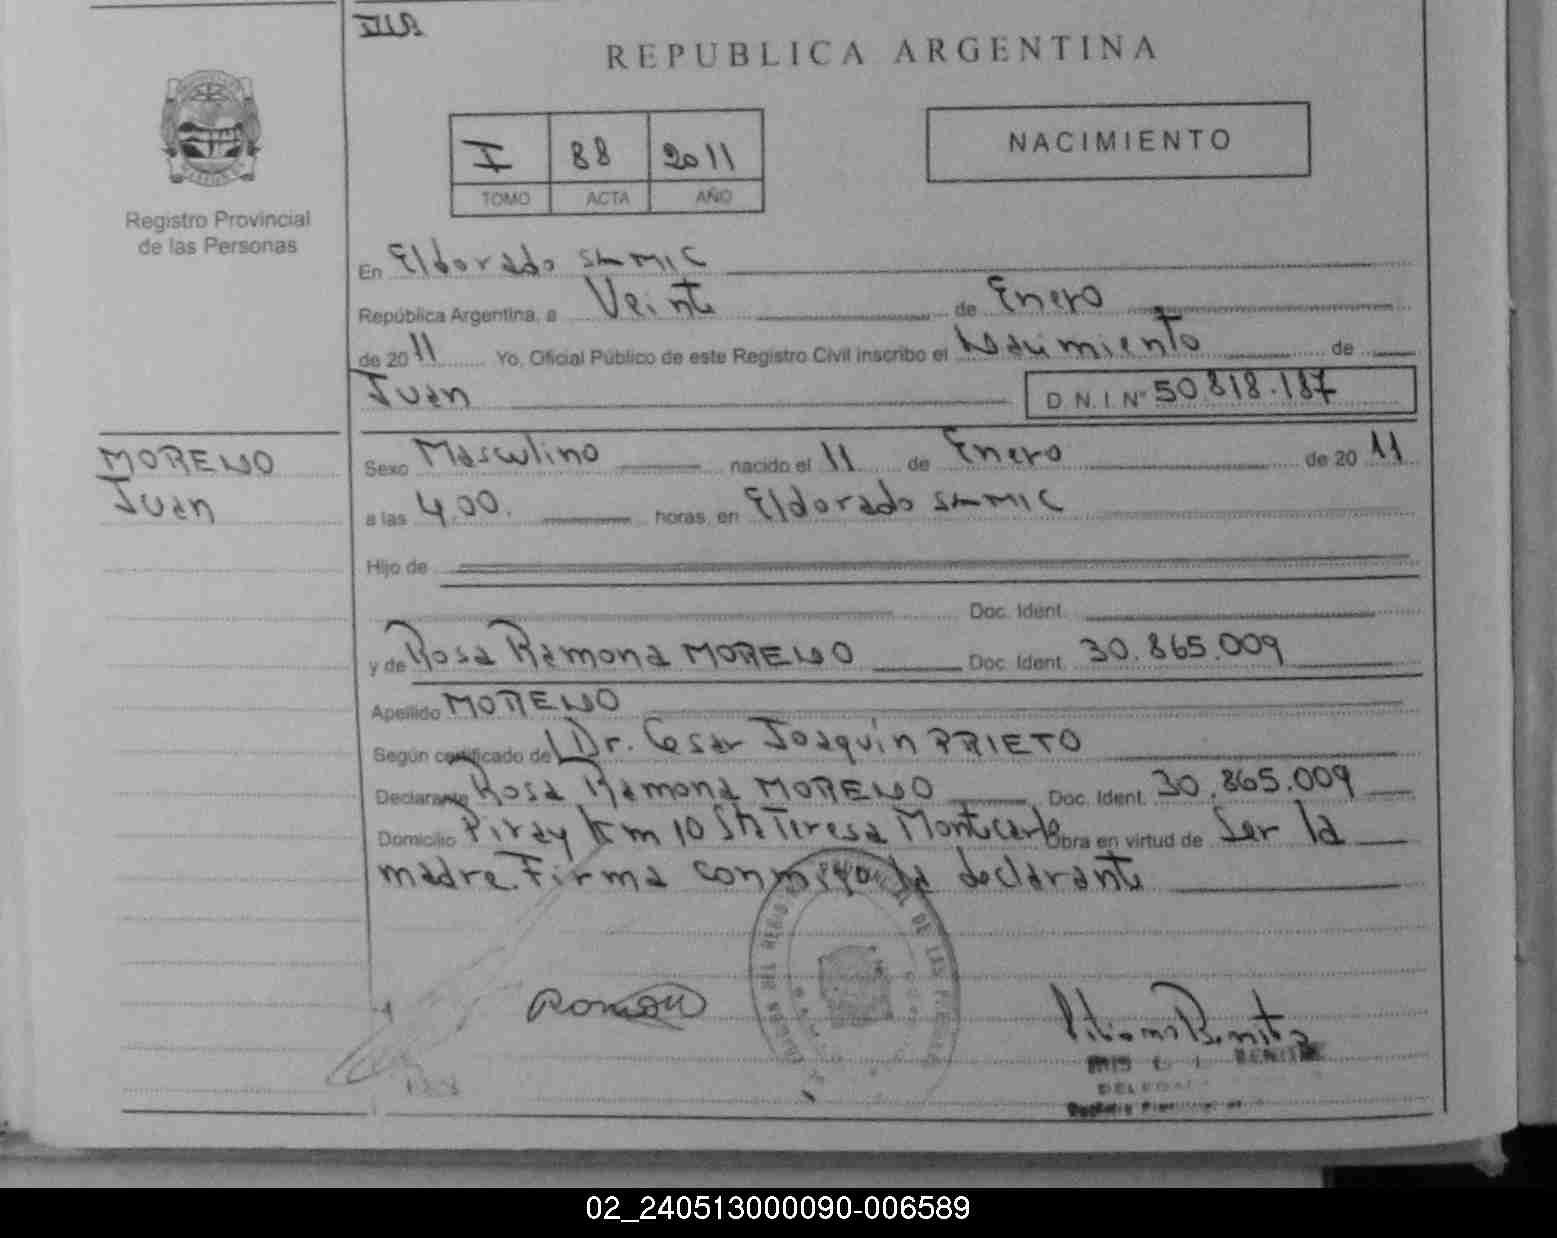 REPUBLICA ARGENTINA
Registro Provincial
de las Personas
I 88 2011
TOMO ACTA AÑO
NACIMIENTO
En Eldorado
República Argentina, a Veinte de Enero
de 2011 Yo, Oficial Público de este Registro Civil inscribo el Nacimiento de
Juan D.N.I. Nº 50.818.187
MORENO
Juan
Sexo Masculino nacido el 11 de Enero de 2011
a las 4,00. horas, en Eldorado
Hijo de
Doc. Ident.
y de Rosa Ramona MORENO Doc. Ident. 30.865.009
Apellido MORENO
Según certificado del Dr. Cesar Joaquin PRIETO
Declarante Rosa Ramona MORENO Doc. Ident. 30.865.009
Domicilio Piray Km 10 Sta Teresa Montecarlo Obra en virtud de Ser la
madre. Firma conmigo la declarante
DE LAS
BENITEZ
02_240513000090-006589